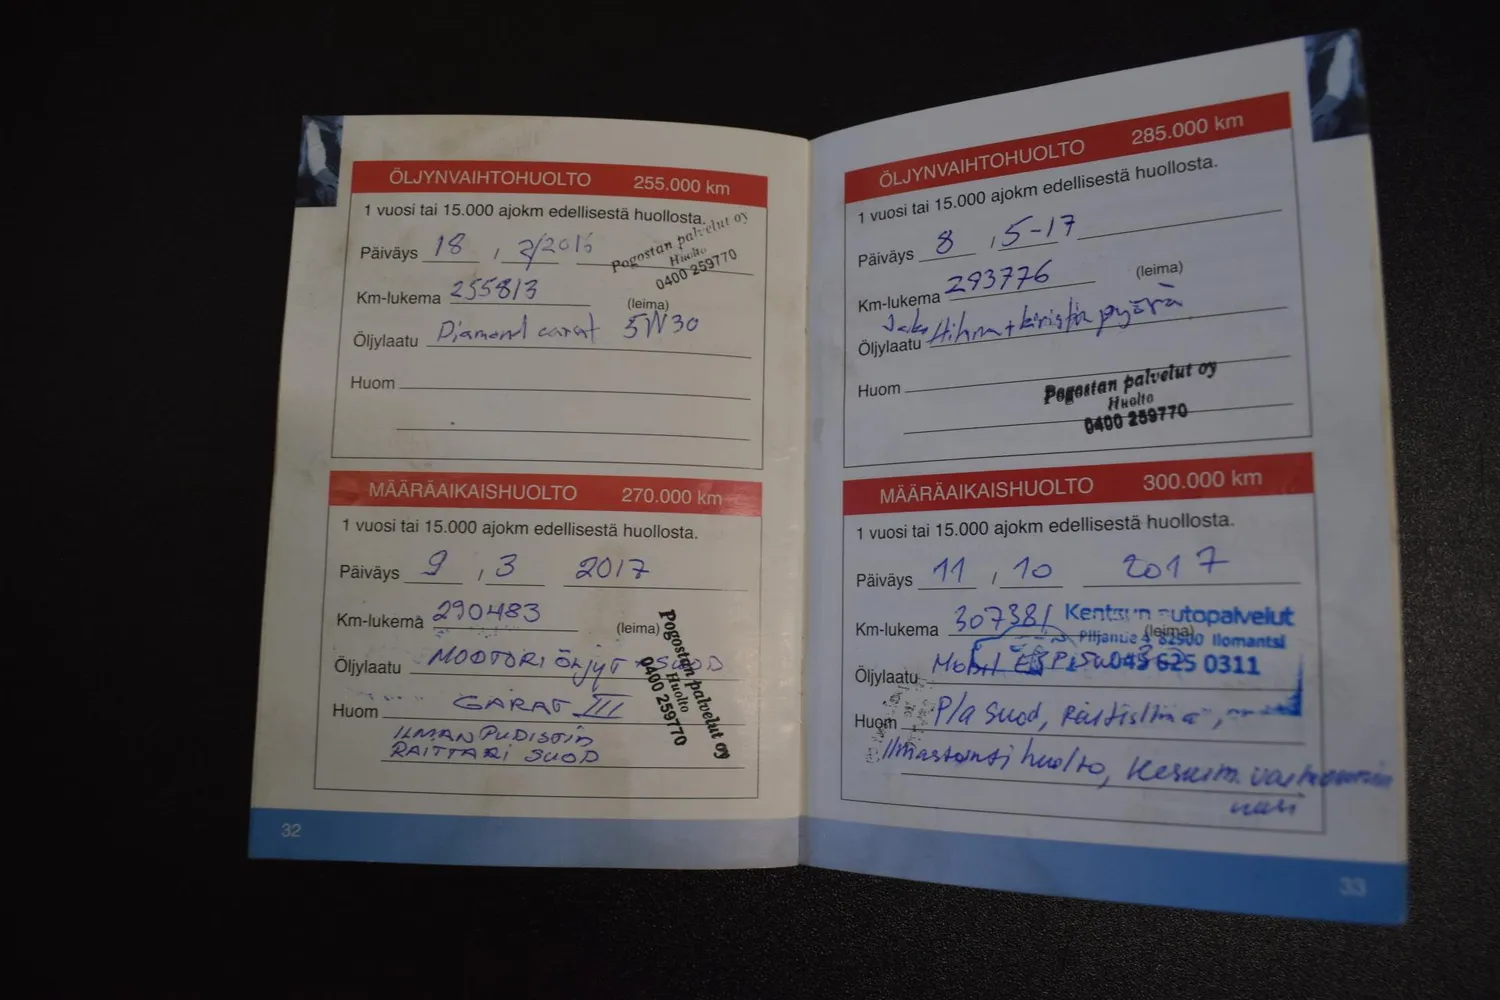 ÖLJYNVAIHTOHUOLTO 255.000 km
1 vuosi tai 15.000 ajokm edellisestä huollosta.
Päiväys 18 , 2/2016
Pogostan palvelut oy
Huolto
0400 259770
Km-lukema 255813
(leima)
Öljylaatu Diamond carat 5W30
Huom
MÄÄRÄAIKAISHUOLTO 270.000 km
1 vuosi tai 15.000 ajokm edellisestä huollosta.
Päiväys 9 , 3 2017
Km-lukema 290483
(leima)
Öljylaatu MOOTORIÖLJYT + SUOD
Huom GARAT III
ILMAN PUDISTIN
RAITTARI SUOD
Pogostan palvelut oy
Huolto
0400 259770
32
ÖLJYNVAIHTOHUOLTO 285.000 km
1 vuosi tai 15.000 ajokm edellisestä huollosta.
Päiväys 8 , 5-17
Km-lukema 293776
(leima)
Öljylaatu Hihna + kiristin pyörä
Huom
Pogostan palvelut oy
Huolto
0400 259770
MÄÄRÄAIKAISHUOLTO 300.000 km
1 vuosi tai 15.000 ajokm edellisestä huollosta.
Päiväys 11 , 10 2017
Km-lukema 307381
autopalvelut
(leima)
82900 Ilomantsi
045 625 0311
Öljylaatu Mobil ESP
Huom P/a suod,
Ilmastointi huolto,
33